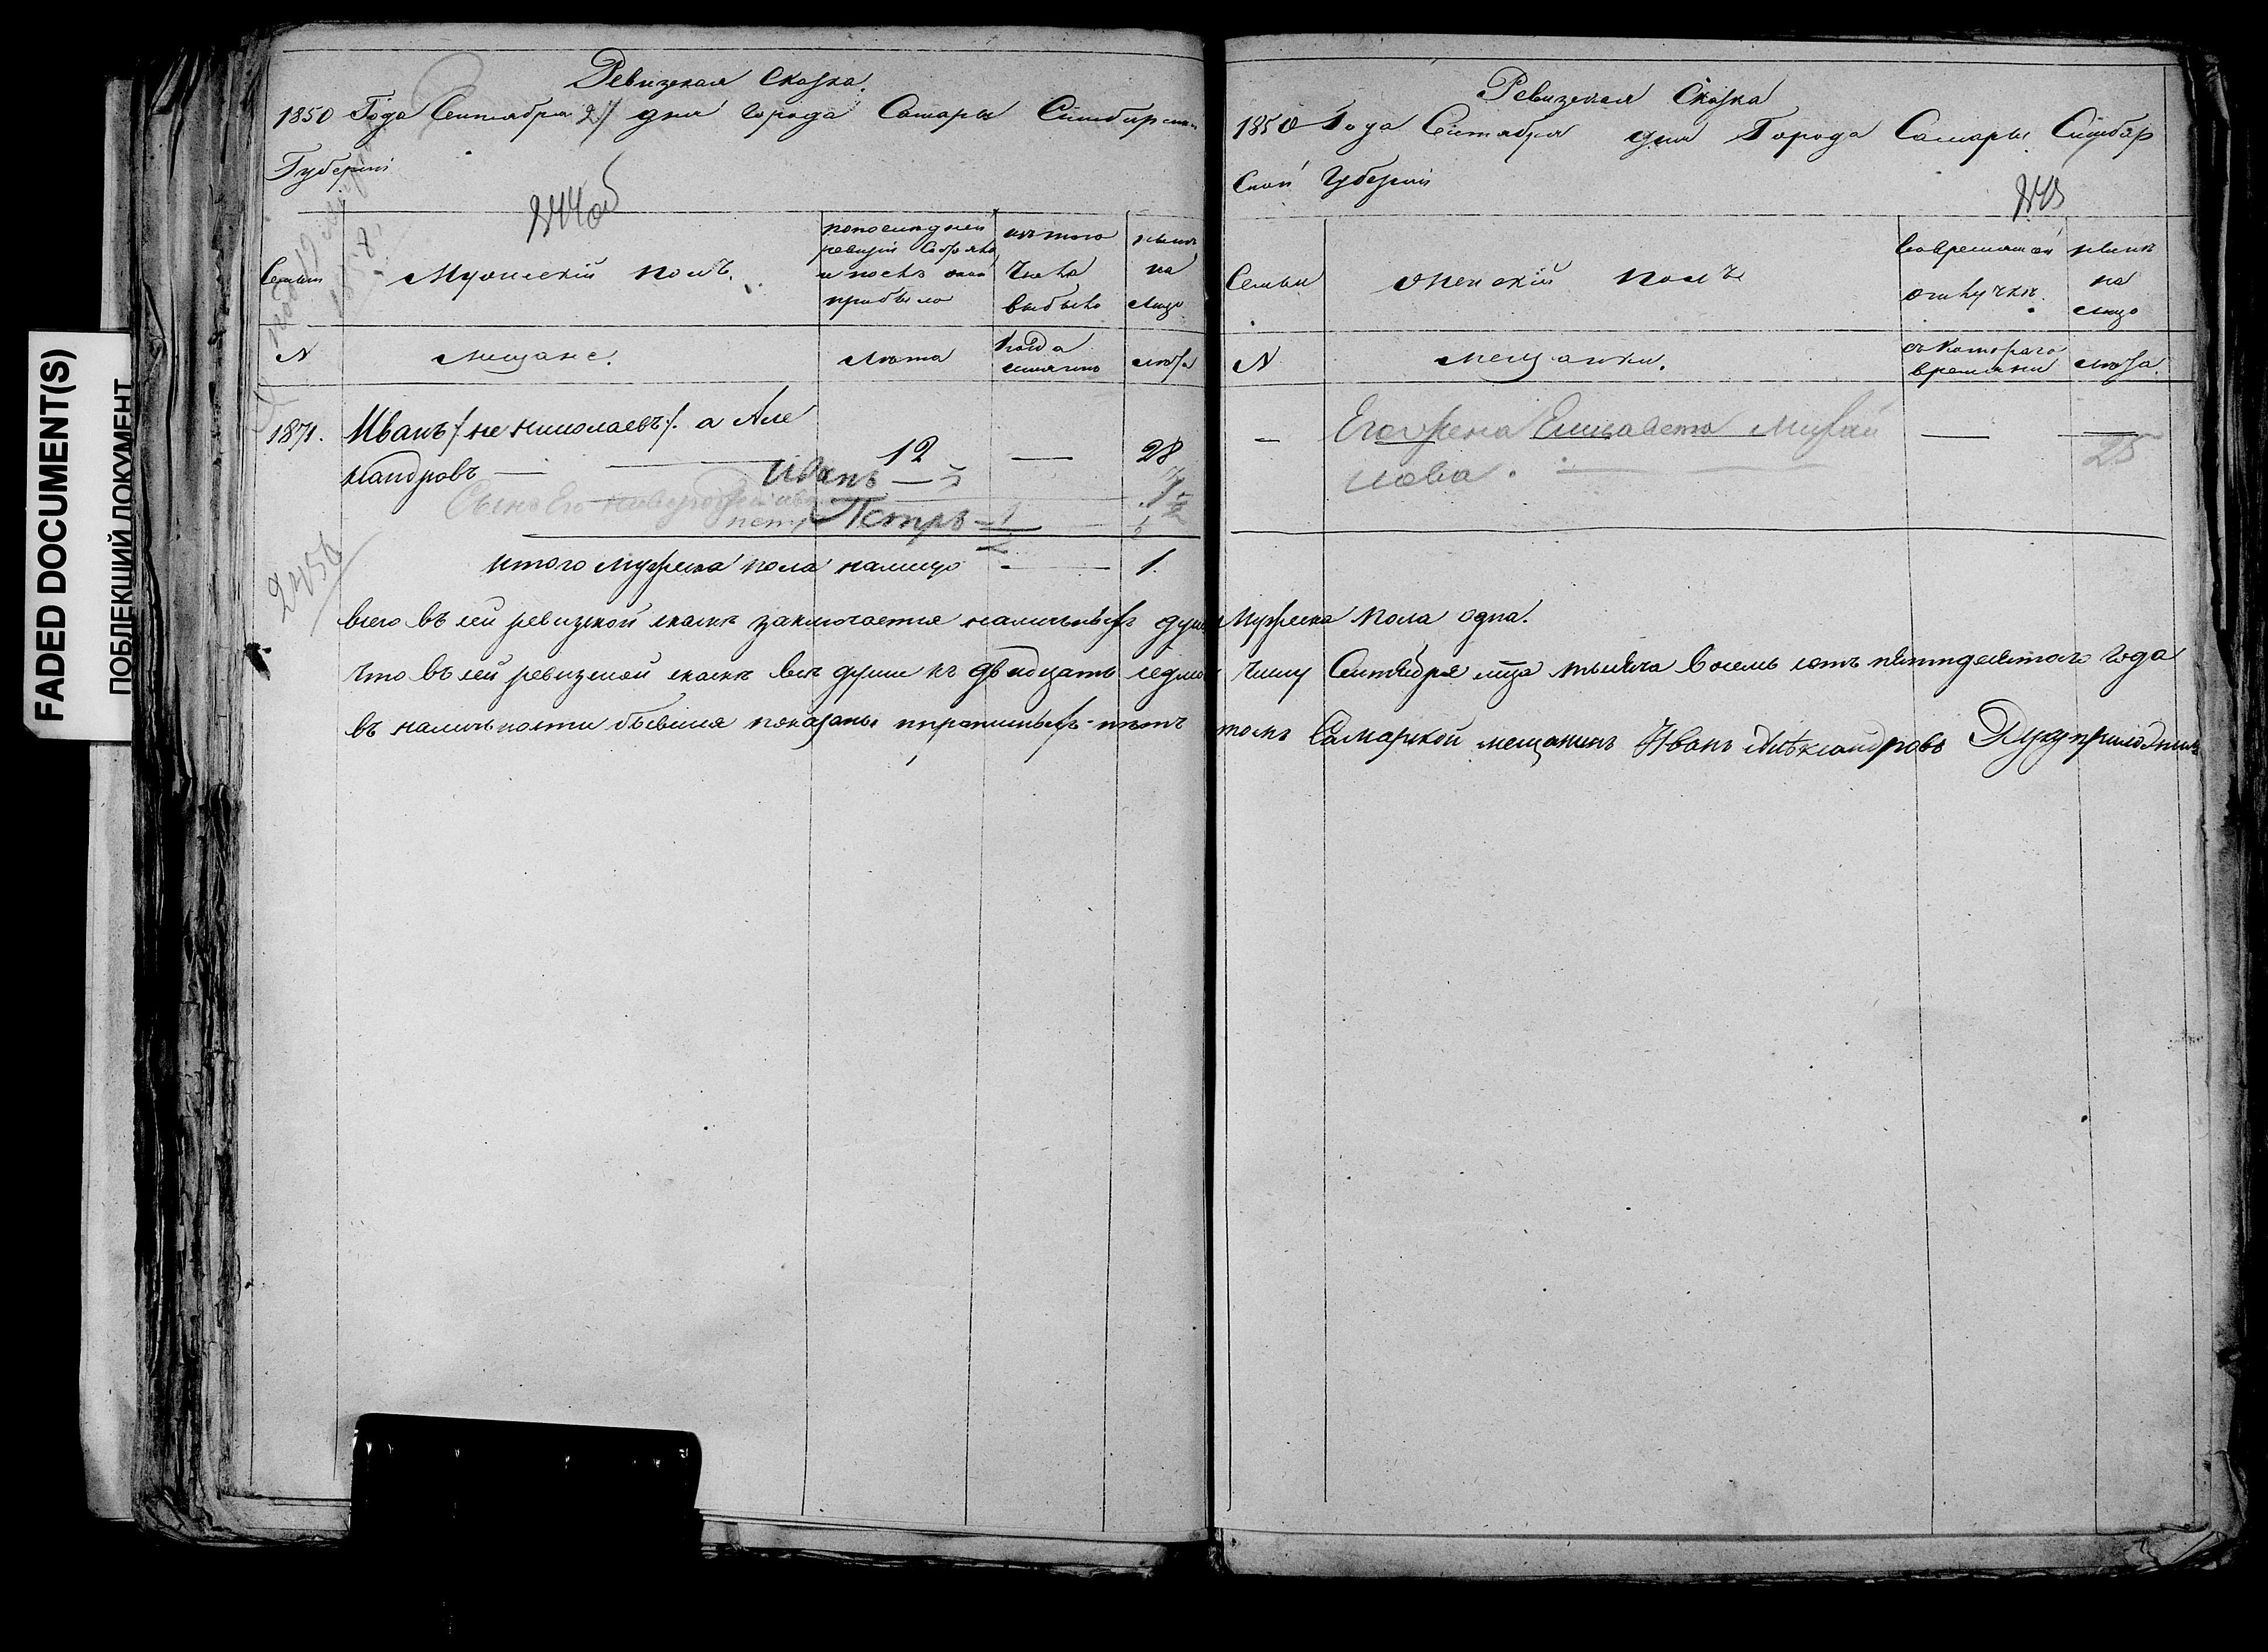 FADED DOCUMENT(S)
ПОБЛЕКШИЙ ДОКУМЕНТ
Ревизская Сказка.
1850 Года Сентября 27 дня города Самары Симбирской
Губернии
Семьи
Мужеский полъ.
по последней ревизии состояло и послѣ оной прибыло
изъ того числа выбыло
нынѣ на лицо
N
Мещане.
Лѣта
когда именно
лѣта
1871.
Иванъ /: не николаевъ :/ а Але
ксандровъ — 12 — 28
Иванъ — 5
Сынъ Его новорожденный
Петръ — 1
2456
итого мужеска пола налицо — 1.
Ревизская Сказка
1850 Года Сентября дня Города Самары Симбир
ской Губернии
245
Семьи
Женский полъ
Во временной отлучкѣ.
нынѣ на лицо
N
мещанки.
съ котораго времени
лѣта.
— Его жена Елисавета Михай — 25
лова.
всего въ сей ревизкой сказкѣ заключается наличныхъ душъ мужеска пола одна.
что въ сей ревизкой сказкѣ всѣ души къ двадцать седмому числу Сентября мца тысяча восемь сотъ пятидесятого года
въ наличности бывшия показаны и прописныхъ нѣтъ въ томъ Самарской мещанинъ Иванъ Александровъ Руку приложилъ